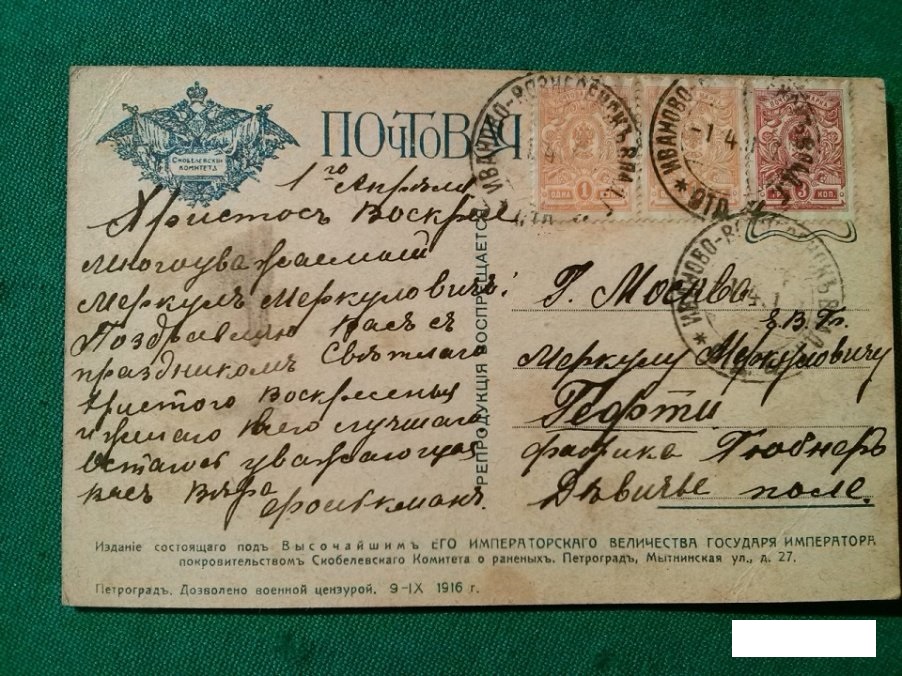 СКОБЕЛЕВСКІЙ
КОМИТЕТЪ
ПОЧТОВАЯ
ИВАНОВО-ВОЗНЕСЕНСКЪ
ИВАНОВО-
ОТД.
-1 4
1
ОДНА КОП.
3 КОП.
ИВАНОВО-ВОЗНЕСЕНСКЪ
1го Апрѣля
Христосъ Воскресе
многоуважаемый
Меркулъ Меркуловичъ!
Поздравляю Васъ съ
праздникомъ Свѣтлаго
Христого Воскресенья
и желаю всего лучшаго
Остаюсь уважающая
васъ Вѣра
РЕПРОДУКЦІЯ ВОСПРЕЩАЕТСЯ
Г. Москва
Е.В.Г.
Меркулу Меркуловичу
фабрика Гюбнеръ
Дѣвичье поле.
Изданіе состоящаго подъ Высочайшимъ ЕГО ИМПЕРАТОРСКАГО ВЕЛИЧЕСТВА ГОСУДАРЯ ИМПЕРАТОРА
покровительствомъ Скобелевскаго Комитета о раненыхъ. Петроградъ, Мытнинская ул., д. 27.
Петроградъ. Дозволено военной цензурой. 9-IX 1916 г.